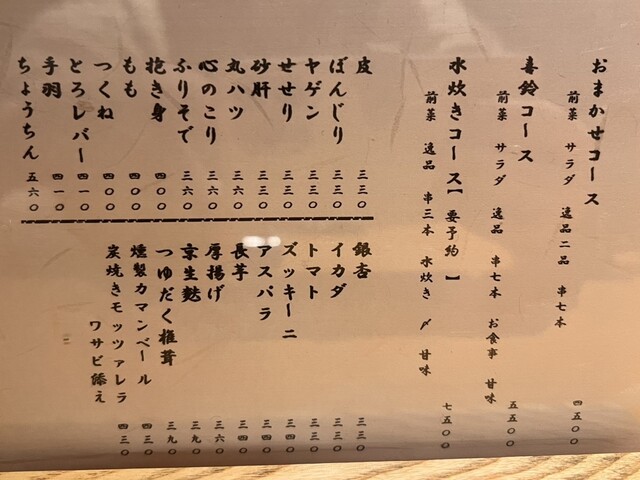 おまかせコース
前菜 サラダ 逸品二品 串七本 四五〇〇
喜鈴コース
前菜 サラダ 逸品 串七本 お食事 甘味 五五〇〇
水炊きコース【要予約】
前菜 逸品 串三本 水炊き 〆 甘味 七五〇〇
皮 三三〇
ぼんじり 三三〇
ヤゲン 三三〇
せせり 三三〇
砂肝 三三〇
丸ハツ 三六〇
心のこり 三六〇
ふりそで 三六〇
抱き身 四〇〇
もも 四〇〇
つくね 四〇〇
とろレバー 四一〇
手羽 四一〇
ちょうちん 五六〇
銀杏 三三〇
イカダ 三三〇
トマト 三三〇
ズッキーニ 三四〇
アスパラ 三四〇
長芋 三四〇
厚揚げ 三六〇
京生麩 三九〇
つゆだく椎茸 三九〇
燻製カマンベール 四三〇
炭焼きモッツァレラ
ワサビ添え 四三〇